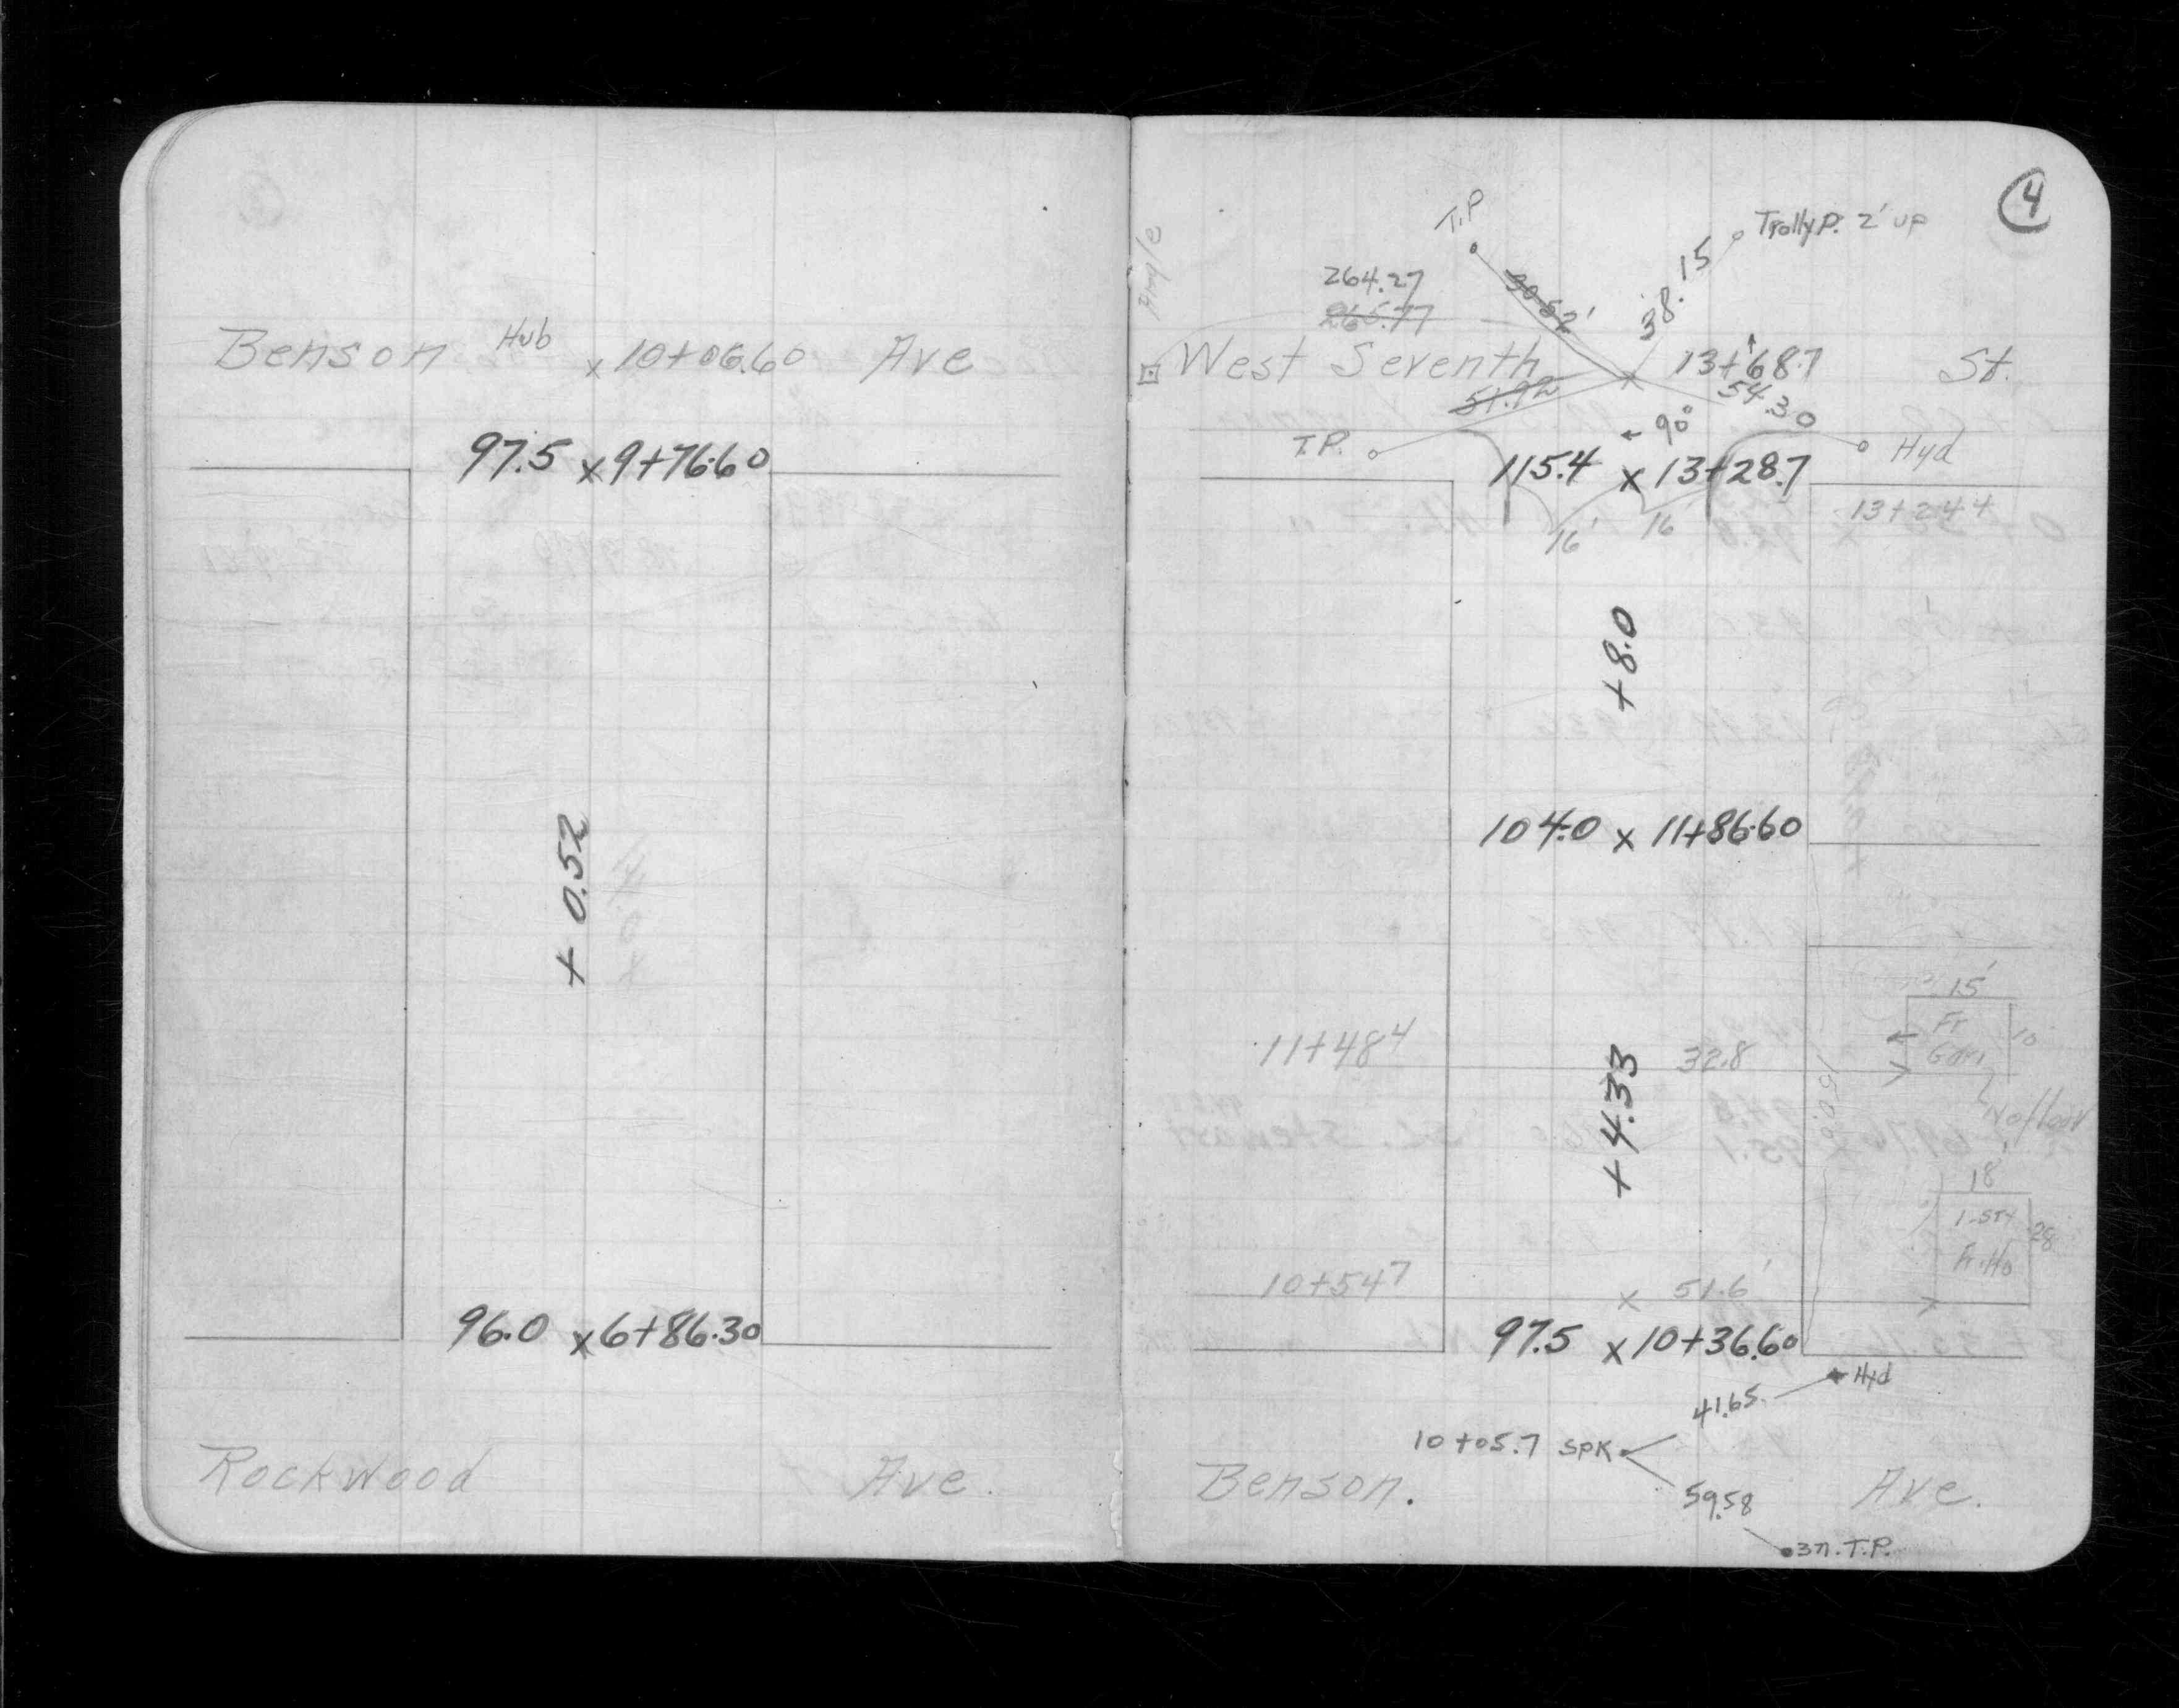 Benson Hub x 10+06.60 Ave
97.5 x 9+76.60
+ 0.52
96.0 x 6+86.30
Rockwood Ave.
4
T.P.
Trolly P. 2' up
Angle
264.27
265.77
30.52'
38.15
West Seventh
13+68.7
St.
51.92
54.30
90°
T.P.
Hyd
115.4 x 13+28.7
13+24.4
16'
16'
+ 8.0
104.0 x 11+86.60
15'
Fr
Gar.
10
11+48.4
32.8
No floor
150.9
+ 4.33
18'
1-STY
Fr. Ho
28
10+54.7
x 51.6'
97.5 x 10+36.60
Hyd
41.65
10+05.7 SPK
59.58
Benson. Ave.
T.P.